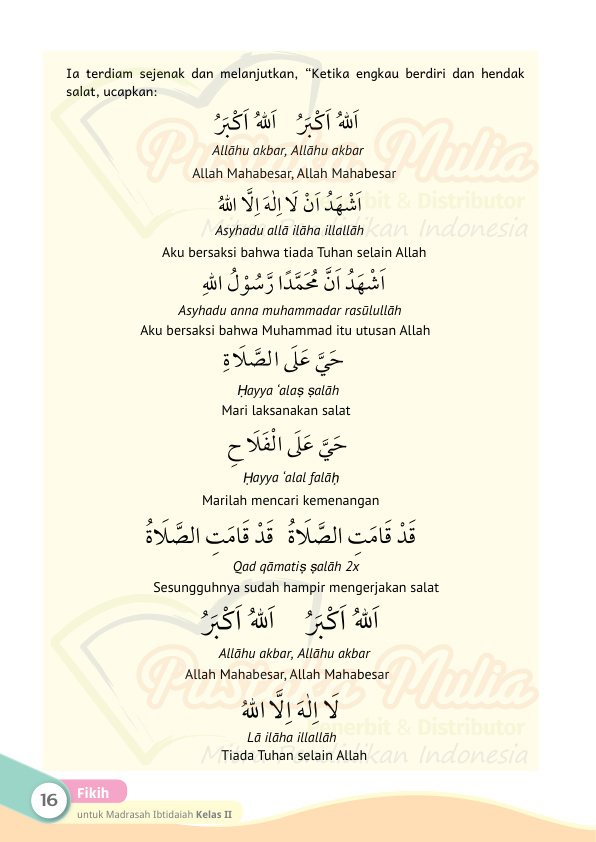 Ia terdiam sejenak dan melanjutkan, “Ketika engkau berdiri dan hendak
salat, ucapkan:
اَللهُ اَكْبَرُ اَللهُ اَكْبَرُ
Allāhu akbar, Allāhu akbar
Allah Mahabesar, Allah Mahabesar
اَشْهَدُ اَنْ لَا اِلٰهَ اِلَّا اللهُ
Asyhadu allā ilāha illallāh
Aku bersaksi bahwa tiada Tuhan selain Allah
اَشْهَدُ اَنَّ مُحَمَّدًا رَّسُوْلُ اللهِ
Asyhadu anna muhammadar rasūlullāh
Aku bersaksi bahwa Muhammad itu utusan Allah
حَيَّ عَلَى الصَّلَاةِ
Ḥayya ‘alaṣ ṣalāh
Mari laksanakan salat
حَيَّ عَلَى الْفَلَاحِ
Ḥayya ‘alal falāḥ
Marilah mencari kemenangan
قَدْ قَامَتِ الصَّلَاةُ قَدْ قَامَتِ الصَّلَاةُ
Qad qāmatiṣ ṣalāh 2x
Sesungguhnya sudah hampir mengerjakan salat
اَللهُ اَكْبَرُ اَللهُ اَكْبَرُ
Allāhu akbar, Allāhu akbar
Allah Mahabesar, Allah Mahabesar
لَا اِلٰهَ اِلَّا اللهُ
Lā ilāha illallāh
Tiada Tuhan selain Allah
Pustaka Mulia
Penerbit & Distributor
Mitra Pendidikan Indonesia
Pustaka Mulia
Penerbit & Distributor
Mitra Pendidikan Indonesia
16
Fikih
untuk Madrasah Ibtidaiah Kelas II